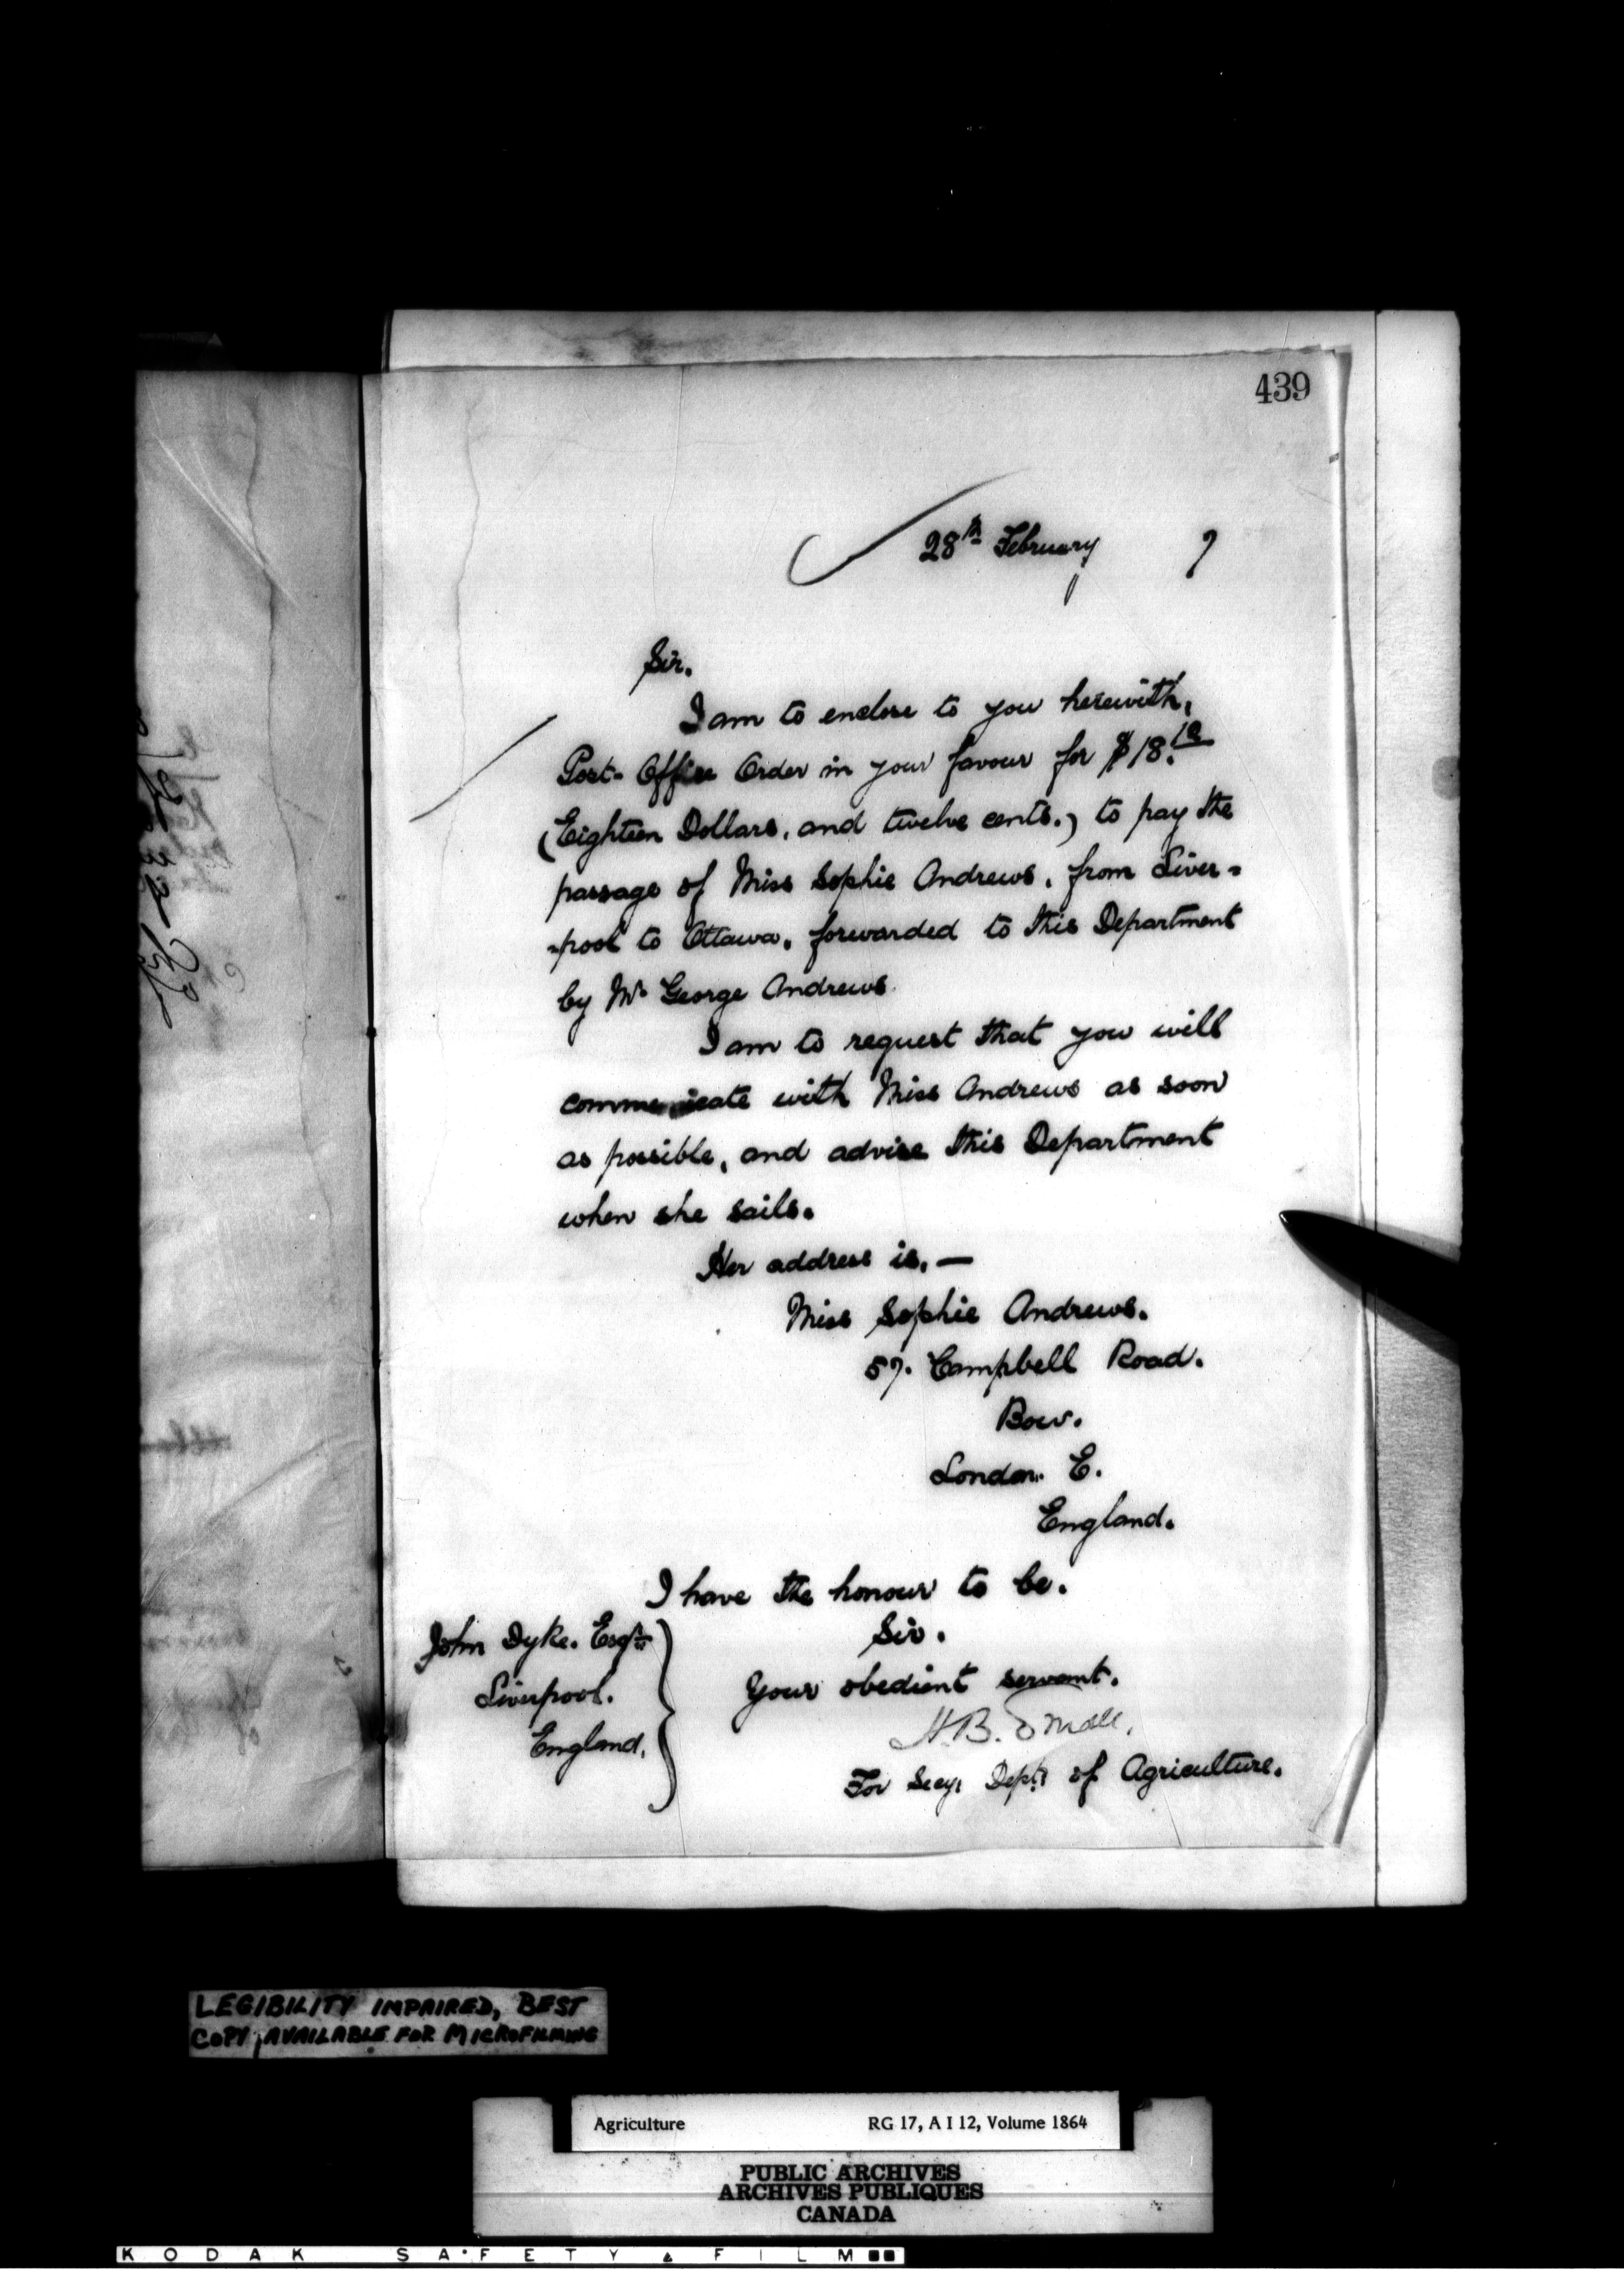 439
28th February 7
Sir.
I am to enclose to you herewith,
Post-Office Order in your favour for $18.12
(Eighteen Dollars, and twelve cents.) to pay the
passage of Miss Sophie Andrews, from Liver=
=pool to Ottawa, forwarded to this Department
by Mr George Andrews.
I am to request that you will
communicate with Miss Andrews as soon
as possible, and advise this Department
when she sails.
Her address is, —
Miss Sophie Andrews.
57. Campbell Road.
Bow.
London. E.
England.
I have the honour to be.
Sir.
Your obedient servant.
H.B. Small.
For Secy, Dept. of Agriculture.
John Dyke. Esqre
Liverpool.
England.
LEGIBILITY IMPAIRED, BEST
COPY AVAILABLE FOR MICROFILMING
Agriculture RG 17, A I 12, Volume 1864
PUBLIC ARCHIVES
ARCHIVES PUBLIQUES
CANADA
KODAK SAFETY FILM